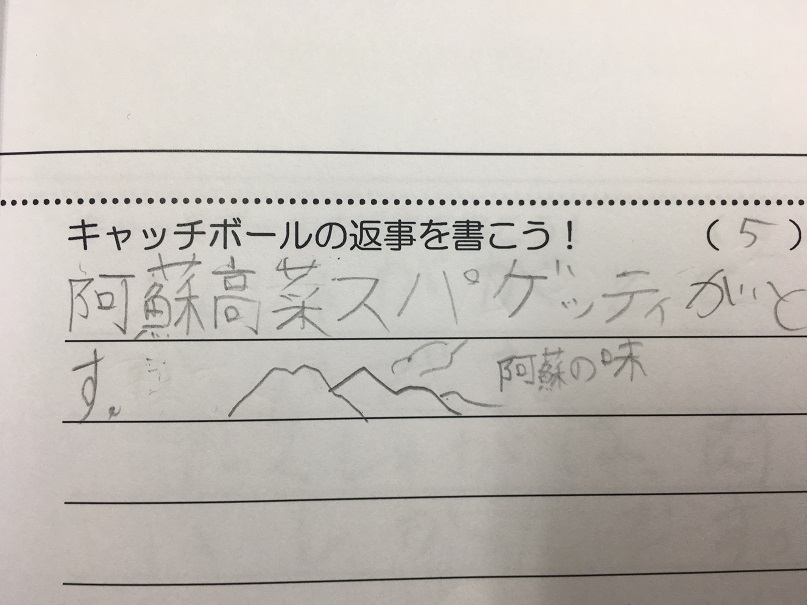 キャッチボールの返事を書こう！ （5）
阿蘇高菜スパゲッティがと
す。
阿蘇の味